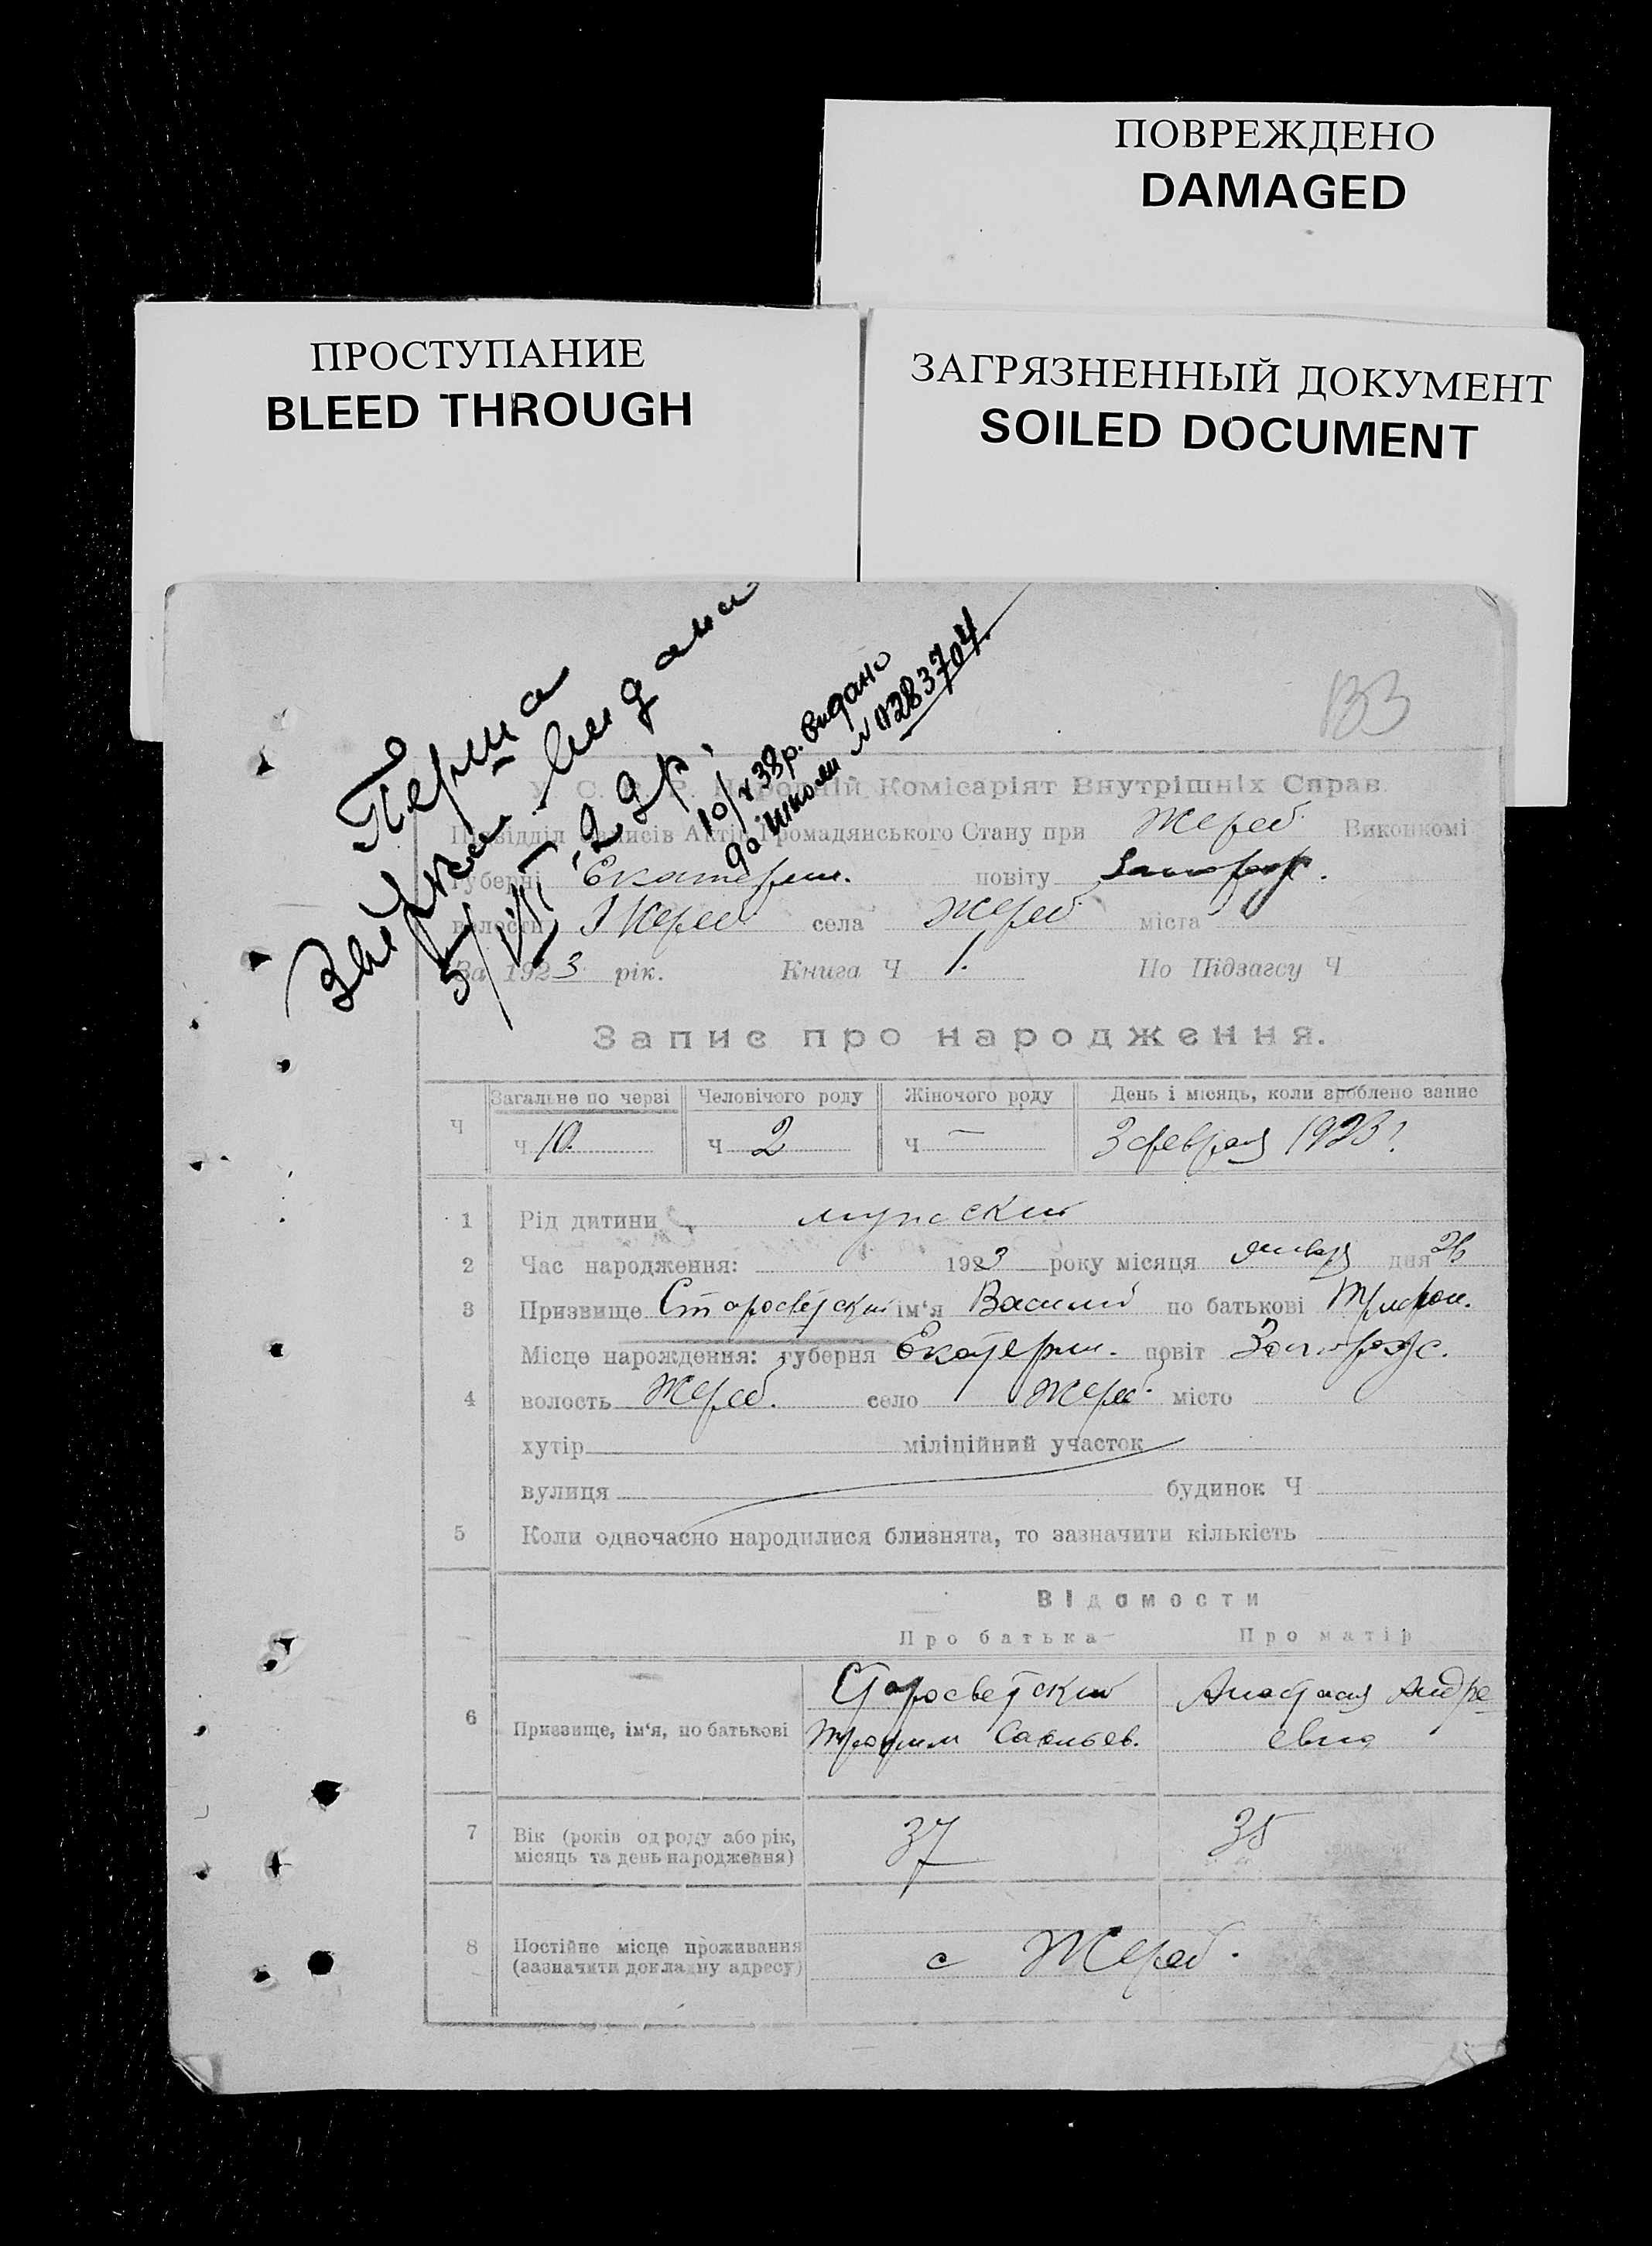 ПОВРЕЖДЕНО
DAMAGED
ПРОСТУПАНИЕ
BLEED THROUGH
ЗАГРЯЗНЕННЫЙ ДОКУМЕНТ
SOILED DOCUMENT
133
Перша
видана
5/VIII-29р.
10/X 38р. видано
до школи N 0283704.
У. С. Р. Р. Народній Комісаріят Внутрішніх Справ.
Підвідділ Записів Актів Громадянського Стану при Жереб. Виконкомі
Губерні Екатерин. повіту Запорож.
волости Жереб села Жереб міста
За 1923 рік. Книга Ч 1. По Підзагсу Ч
Запис про народження.
Ч Загальне по черзі Человічого роду Жіночого роду День і місяць, коли зроблено запис
Ч 10. Ч 2 Ч — 3 февраля 1923 г.
1 Рід дитини мужский
2 Час народження: 1923 року місяця января дня 26
3 Призвище Старосветский ім'я Василий по батькові Трифон.
Місце нарождення: губерня Екатерин. повіт Запорож.
4 волость Жереб. село Жереб. місто
хутір міліційний участок
вулиця будинок Ч
5 Коли одночасно народилися близнята, то зазначити кількість
Відомости
Про батька Про матір
6 Призвище, ім'я, по батькові Старосветский Анастасия Андре-
Трофим Савельев. евна
7 Вік (років од роду або рік, місяць та день народження) 37 35
8 Постійне місце проживання (зазначити докладну адресу) с Жереб.